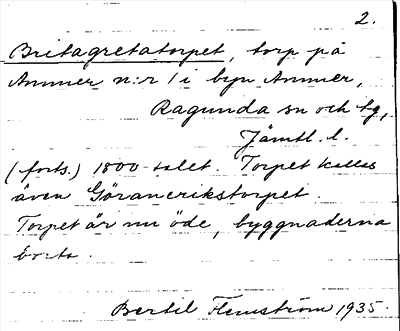 2.
Britagretatorpet, torp på
Ammer n:r 1 i byn Ammer,
Ragunda sn och tg,
Jämtl. l.
(forts.) 1800-talet. Torpet kallas
även Göranerikstorpet.
Torpet är nu öde, byggnaderna
borta.
Bertil Flemström 1935.